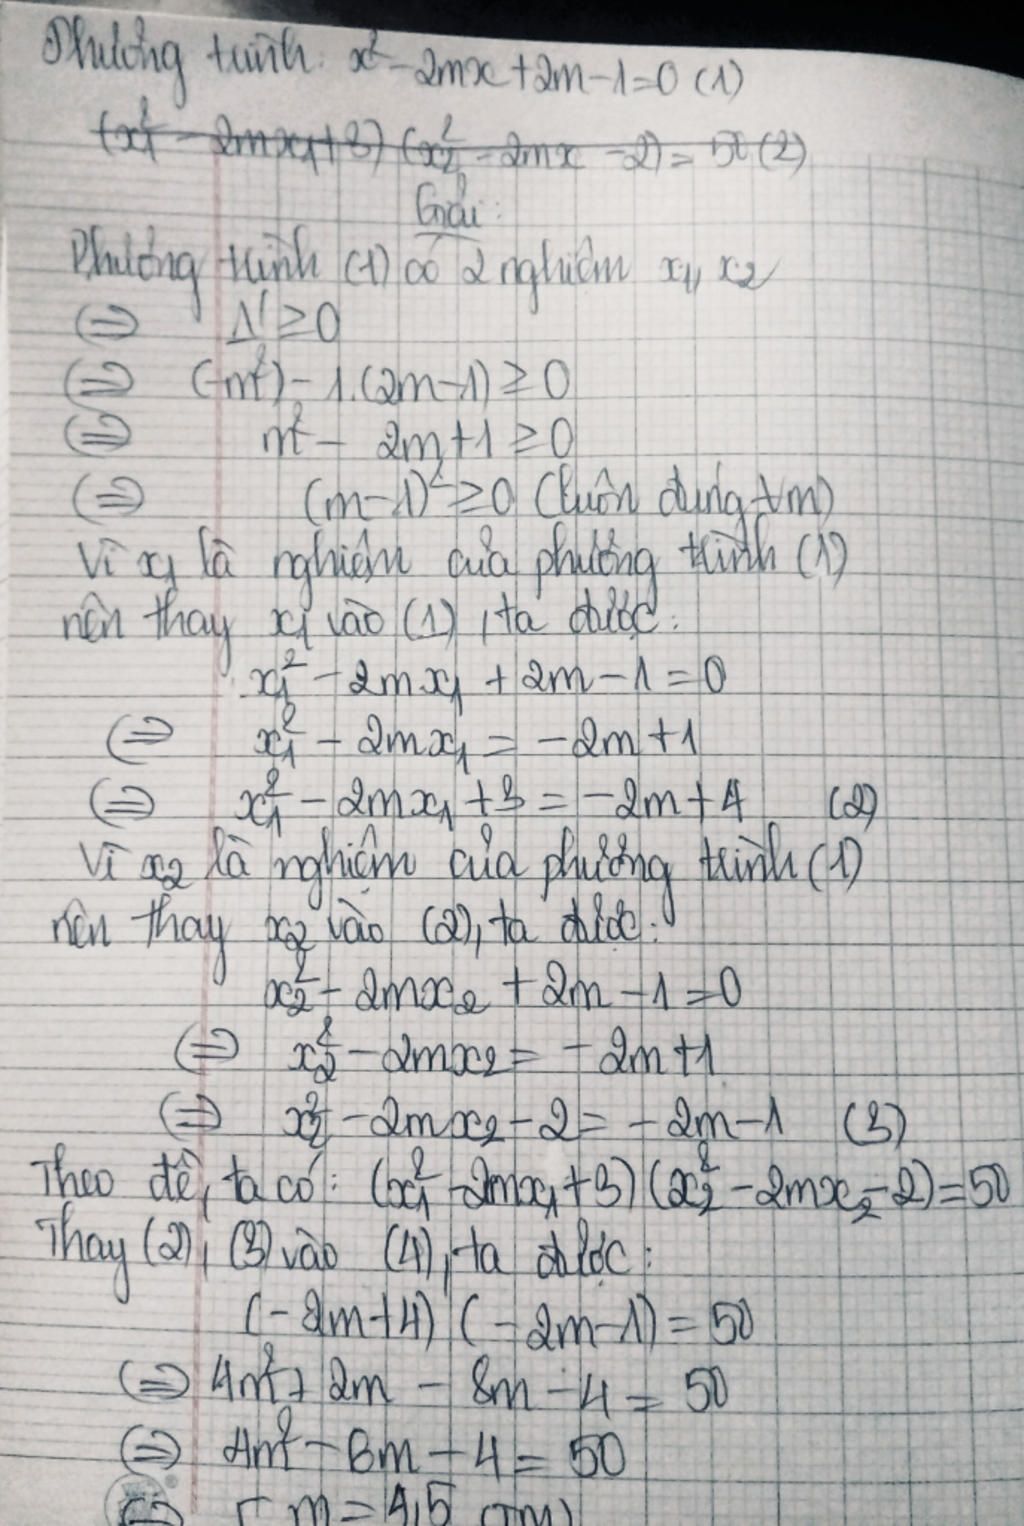 Phương trình: x² - 2mx + 2m - 1 = 0 (1)
(x₁² - 2mx₁ + 3) (x₂² - 2mx - 2) = 50 (2)
Giải:
Phương trình (1) có 2 nghiệm x₁, x₂
⇔ Δ' ≥ 0
⇔ (-m²) - 1.(2m-1) ≥ 0
⇔ m² - 2m + 1 ≥ 0
⇔ (m-1)² ≥ 0 (luôn đúng ∀m)
Vì x₁ là nghiệm của phương trình (1)
nên thay x₁ vào (1), ta được:
x₁² - 2mx₁ + 2m - 1 = 0
⇔ x₁² - 2mx₁ = -2m + 1
⇔ x₁² - 2mx₁ + 3 = -2m + 4 (2)
Vì x₂ là nghiệm của phương trình (1)
nên thay x₂ vào (2), ta được:
x₂² - 2mx₂ + 2m - 1 = 0
⇔ x₂² - 2mx₂ = -2m + 1
⇔ x₂² - 2mx₂ - 2 = -2m - 1 (3)
Theo đề, ta có: (x₁² - 2mx₁ + 3) (x₂² - 2mx₂ - 2) = 50
Thay (2), (3) vào (4), ta được:
(-2m + 4) (-2m - 1) = 50
⇔ 4m² + 2m - 8m - 4 = 50
⇔ 4m² - 6m - 4 = 50
⇔ [ m = 4,5 (TM)